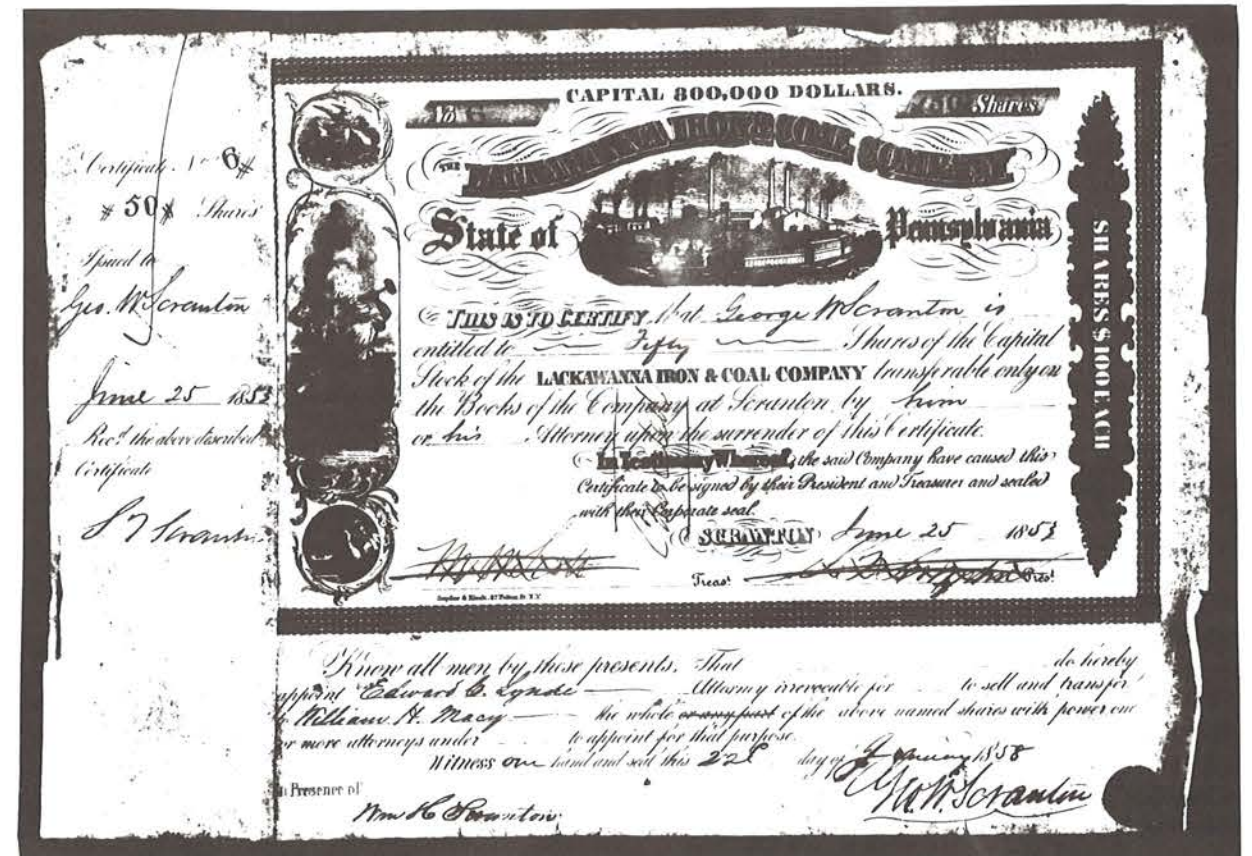 Certificate No 6
50 Shares
Issued to
Geo. W Scranton
June 25 1853
Rec.d the above described
Certificate
S T Scranton
CAPITAL 800,000 DOLLARS.
No 6
50 Shares
THE LACKAWANNA IRON & COAL COMPANY
State of Pennsylvania
THIS IS TO CERTIFY, that George W Scranton is
entitled to Fifty Shares of the Capital
Stock of the LACKAWANNA IRON & COAL COMPANY transferable only on
the Books of the Company at Scranton by him
or his Attorney upon the surrender of this Certificate.
In Testimony Whereof, the said Company have caused this
Certificate to be signed by their President and Treasurer and sealed
with their Corporate seal.
SCRANTON June 25 1853
Treas.r Pres.t
SHARES $100 EACH
Know all men by these presents, That do hereby
appoint Edward C. Lynde Attorney irrevocable for to sell and transfer
to William H. Macy the whole or any part of the above named shares with power one
or more attorneys under to appoint for that purpose.
Witness our hand and seal this 22d day of January 1858
In Presence of
Geo W. Scranton
Wm H Scranton